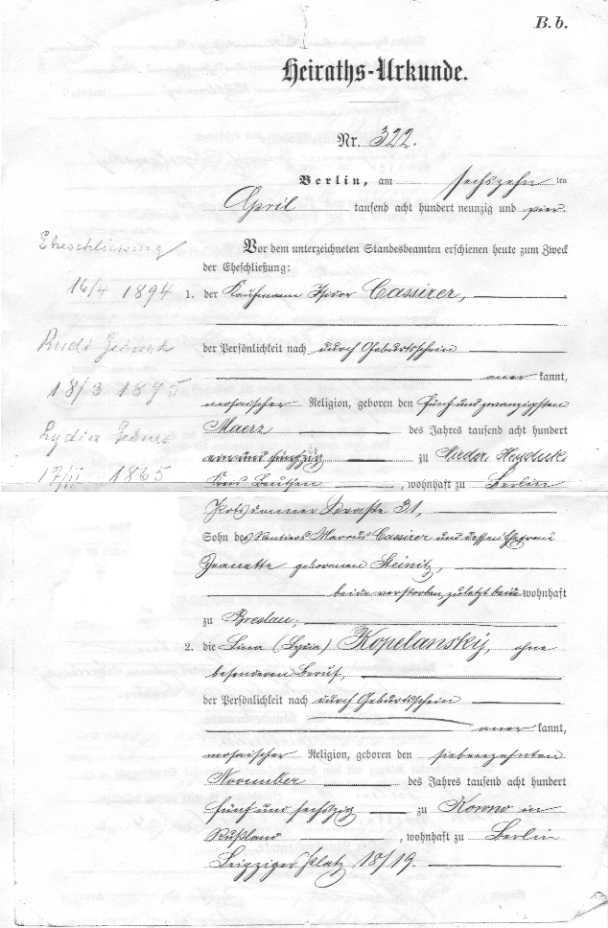 B. b.
Heiraths-Urkunde.
Nr. 322.
Berlin, am sechszehn ten
April tausend acht hundert neunzig und vier.
Eheschliessung
16/4 1894
Vor dem unterzeichneten Standesbeamten erschienen heute zum Zweck
der Eheschließung:
1. der Kaufmann Isidor Cassirer,
der Persönlichkeit nach durch Geburtsschein
aner kannt,
Rudi
18/3 1895
mosaischer Religion, geboren den fünf und zwanzigsten
Maerz des Jahres tausend acht hundert
Lydia
17/11 1865
ein und fünfzig zu Nieder Heyduk
Kreis Beuthen, wohnhaft zu Berlin
Potsdammer Straße 31,
Sohn des Rentiers Marcus Cassirer und dessen Ehefrau
Jeanette geborenen Steinitz,
beide verstorben, zuletzt beide wohnhaft
zu Breslau;
2. die Lina (Lydia) Kopelansky, ohne
besonderen Beruf,
der Persönlichkeit nach durch Geburtsschein
aner kannt,
mosaischer Religion, geboren den siebenzehnten
November des Jahres tausend acht hundert
fünf und sechszig zu Kowno in
Rußland, wohnhaft zu Berlin
Leipziger Platz 18/19.